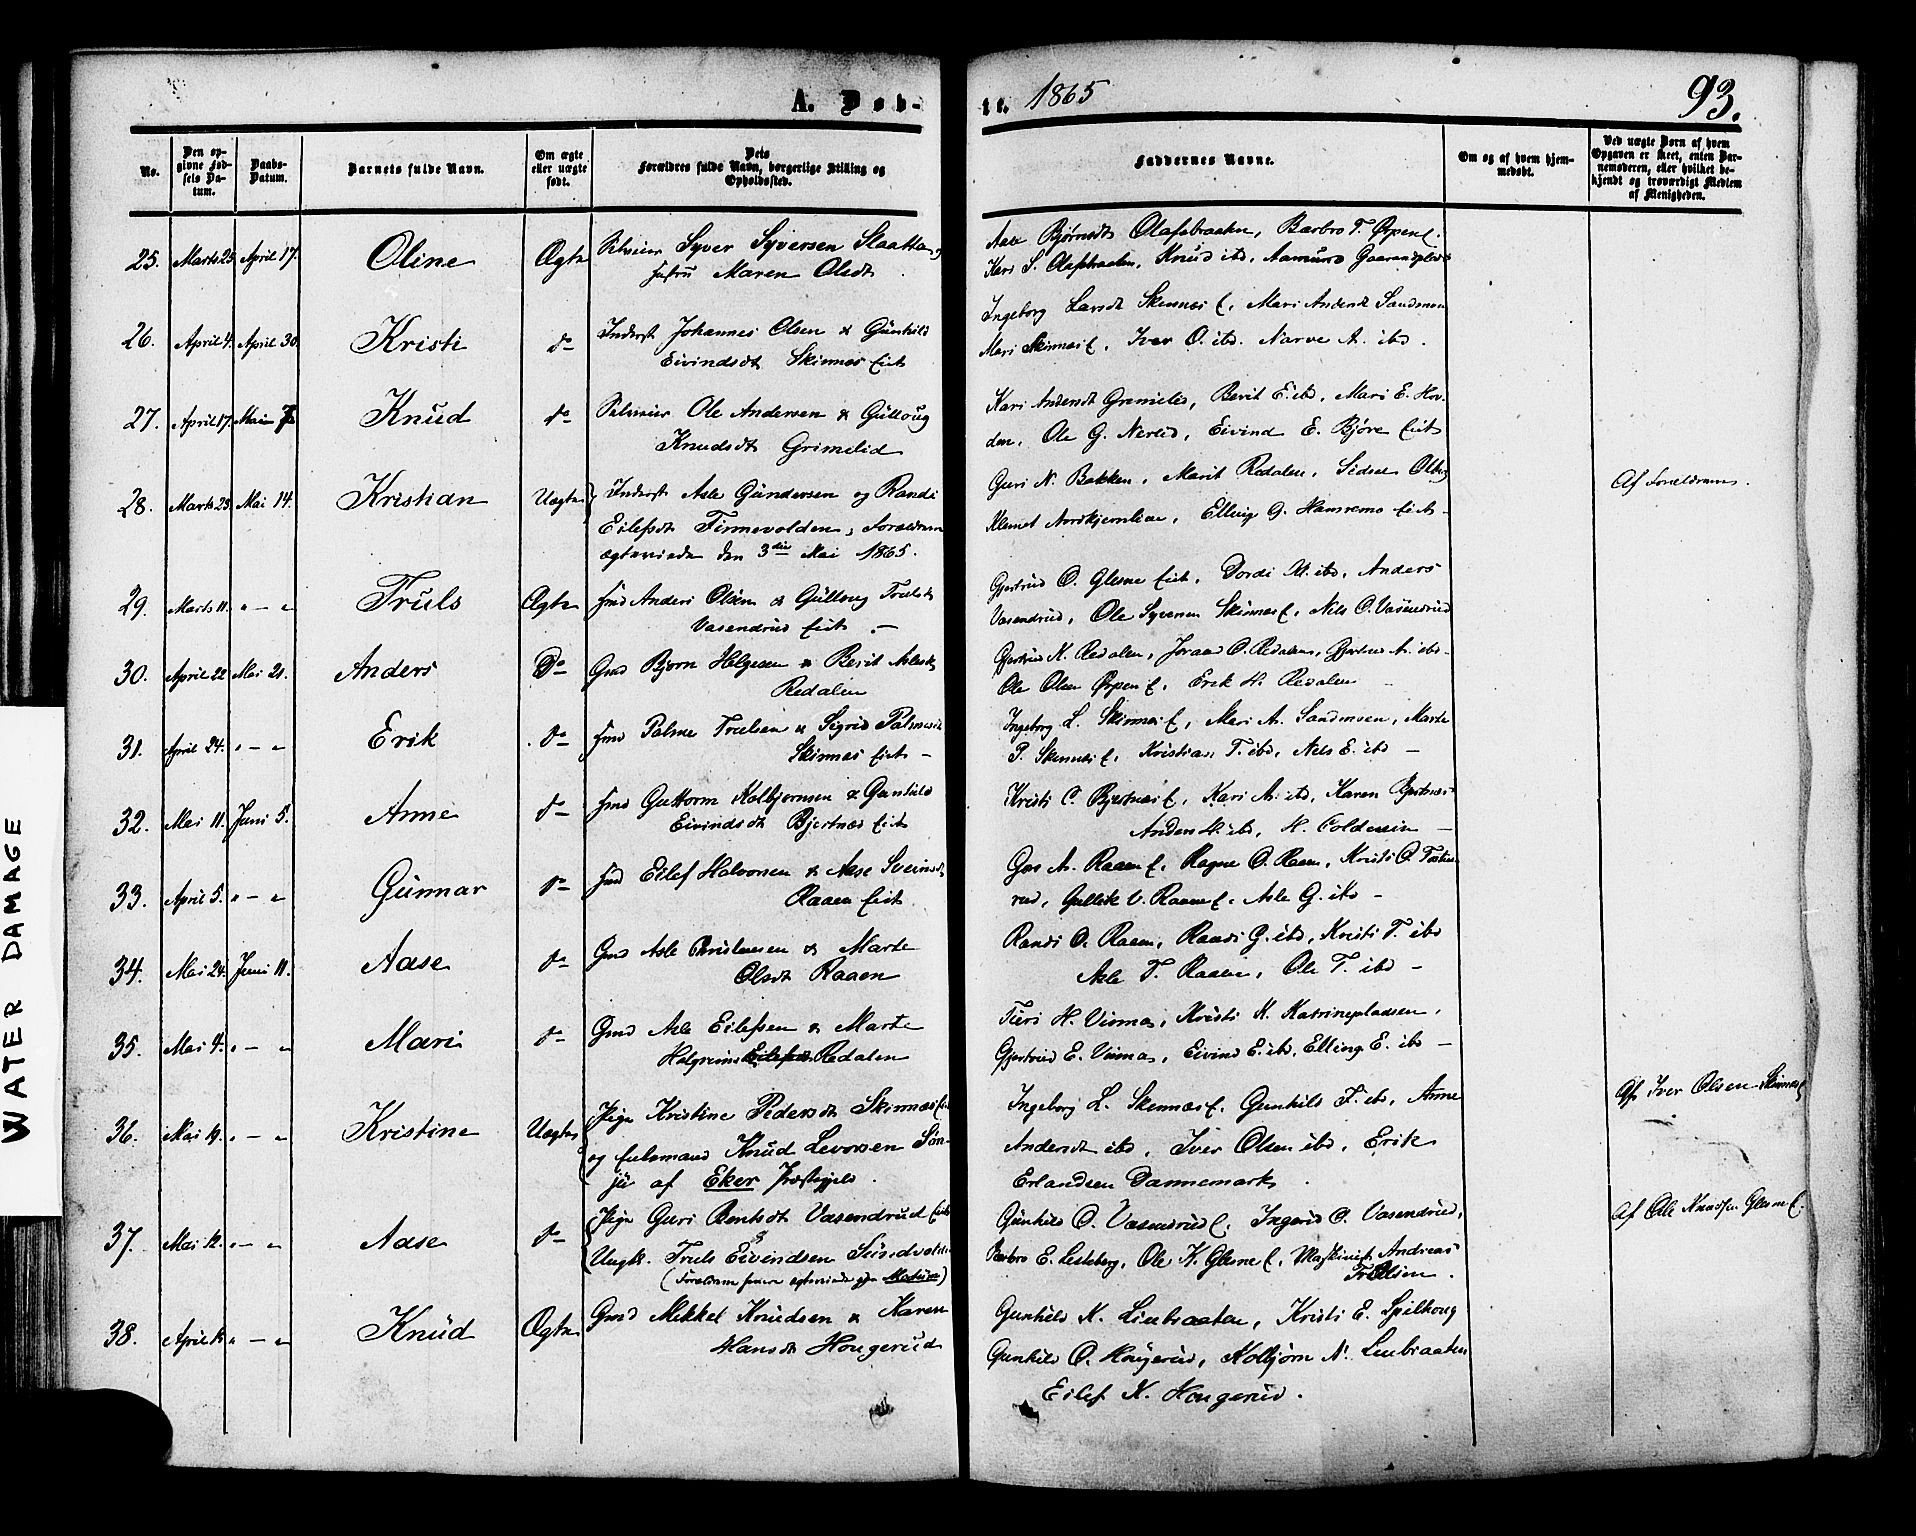 A. Døb-
te. 1865
93.
No.
Den op-
givne Fød-
sels Da-
tum.
Daabs-
Datum.
Barnets fulde Navn.
Om ægte
eller uægte
født.
Dets
Forældres fulde Navn, borgerlige Stilling og
Opholdssted.
Faddernes Navne.
Om og af hvem hjem-
medøbt.
Ved uægte Børn af hvem
Opgaven er skeet, enten Bar-
nemoderen, eller hvilket be-
kjendt og troværdigt Medlem
af Menigheden.
25. Marts 25. April 17. Oline Ægte Selveier Syver Syversen Slaatta og
Hustru Maren Olsdt
Aase Bjørnsdt Olafsbraaten, Barbro T. Ørpen E.
Kari S. Olafsbraaten, Knud ibd, Aamund Gaarandpladsen
26. April 4. April 30. Kristi do Inderst Johannes Olsen & Gunhild
Eivindsdt Skinnes Eiet
Ingeborg Larsdt Skinnes E. Mari Andersdt Sandmoen
Mari Skinnes E. Iver O. ibd. Narve A. ibd.
27. April 17. Mai 7 Knud do Selveier Ole Andersen & Gulloug
Knudsdt Grimelid
Kari Andersdt Grimelid, Berit E. ibd, Mari E. Hov-
den, Ole G. Nerlid, Eivind E. Bjøre Eiet
28. Marts 23. Mai 14. Kristian Uægte Inderst Asle Gundersen og Randi
Eilefsdt Finnevolden, Forældrene
ægteviede den 3die Mai 1865.
Guri N. Bakken, Marit Redalen, Sidsel Olberg
Klemet Nordkjernlien, Elling G. Hamremo Eiet
Af Forældrene.
29. Marts 11. " — " Truls Ægte Gmd Anders Olsen & Gulloug Trulsdt
Vasendrud Eiet —
Gjertrud O. Glesne Eiet, Dordi M. ibd, Anders
Vasendrud, Ole Syversen Skinnes E, Nils O. Vasendrud
30. April 22 Mai 21. Anders Do Gmd Bjørn Helgesen & Berit Aslesdt
Redalen
Gjertrud K. Redalen, Joraand O. Redalen, Gjertrud A. ibd
Ole Olsen Ørpen E, Erik H. Redalen
31. April 24. " — " Erik do Gmd Palme Trulsen & Sigrid Palmesdt
Skinnes Eiet —
Ingeborg L. Skinnes E, Mari A. Sandmoen, Marte
P. Skinnes E, Kristian T. ibd, Nils E. ibd —
32. Mai 11. Juni 5. Anne do Gmd Guttorm Kolbjørnsen & Gunhild
Eivindsdt Bjertnes Eiet
Kristi O. Bjertnes E, Kari A. ibd, Karen Bjertnes
Anders H. ibd, H. Coldevin —
33. April 5. " — " Gunnar do Gmd Eilef Halvorsen & Aase Sveinsdt
Raaen Eiet.
Gro A. Raaen E, Ragne O. Raaen, Kristi O. Tostens-
rud, Gullik V. Raaen E. Asle G. ibd —
34. Mai 24. Juni 11. Aase do Gmd Asle Christensen & Marte
Olsdt Raaen
Randi O. Raaen, Randi G. ibd, Kristi T. ibd
Asle T. Raaen, Ole T. ibd —
35. Mai 4. " — " Mari do Gmd Asle Eilefsen & Marte
Halgrims Eilefsdt Redalen
Turi H. Virmas, Kristi K. Katrinepladsen,
Gjertrud E. Virmas, Eivind E. ibd, Elling E. ibd —
36. Mai 19. " — " Kristine Uægte Pige Kristine Pedersdt Skinnes Eiet
og Gulsmand Knud Levorsen Søn-
ju af Eker Præstegjeld.
Ingeborg L. Skinnes E. Gunhild T. ibd, Anne
Andersdt ibd, Iver Olsen ibd, Erik
Erlandsen Dannemark.
Af Iver Olsen Skinnes E
37. Mai 12. " — " Aase do Pige Guri Berntsdt Vasendrud Eiet &
Ungk. Truls Eivindsen Sundvolden
(Forældrene senere ægteviede paa Modum)
Gunhild O. Vasendrud E. Ingerid O. Vasendrud,
Barbro E. Lesteberg, Ole K. Glesne E, Maskinist Andreas
Trulsen.
Af Ole Knudsen Glesne E.
38. April 12. " — " Knud Ægte Gmd Mikkel Knudsen & Karen
Hansdt Hougerud
Gunhild K. Liubraaten, Kristi E. Spilhoug
Gunhild O. Hougerud, Kolbjørn N. Liubraaten
Eilef K. Hougerud.
WATER DAMAGE